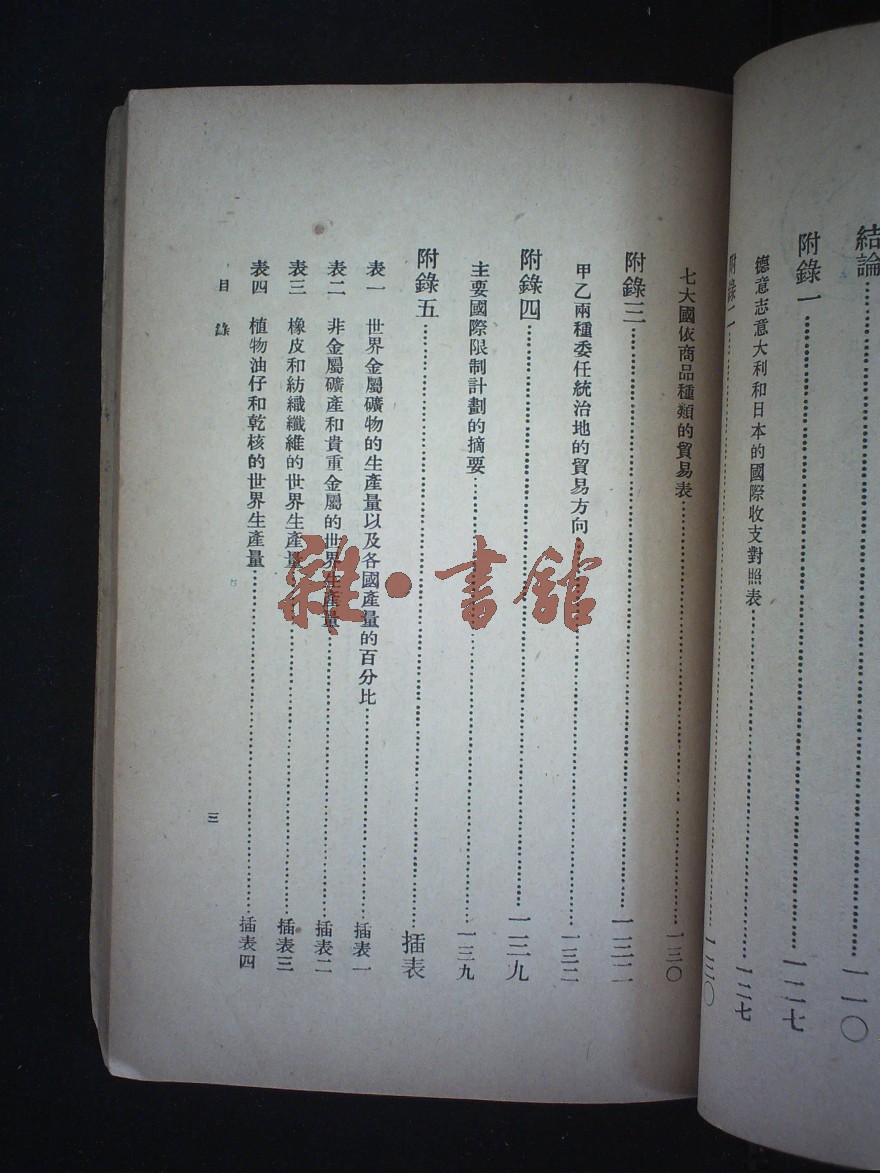 結論……一一〇
附錄一……一二七
德意志意大利和日本的國際收支對照表……一二七
附錄二……一三〇
七大國依商品種類的貿易表……一三〇
附錄三……一三二
甲乙兩種委任統治地的貿易方向……一三二
附錄四……一三九
主要國際限制計劃的摘要……一三九
附錄五……插表
表一 世界金屬礦物的生產量以及各國產量的百分比……插表一
表二 非金屬礦產和貴重金屬的世界生產量……插表二
表三 橡皮和紡織纖維的世界生產量……插表三
表四 植物油仔和乾核的世界生產量……插表四
目錄
三
雜·書館